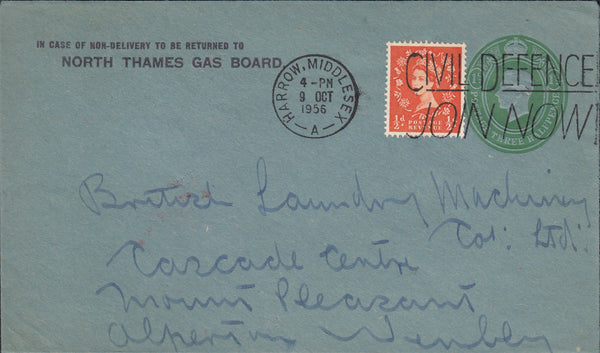 IN CASE OF NON-DELIVERY TO BE RETURNED TO
NORTH THAMES GAS BOARD
HARROW, MIDDLESEX
4-PM
9 OCT
1956
A
CIVIL DEFENCE
JOIN NOW
½d
POSTAGE
REVENUE
½d
THREE HALFPENCE
British Laundry Machinery
Co: Ltd:
Cascade Centre
Mount Pleasant
Alperton Wembley